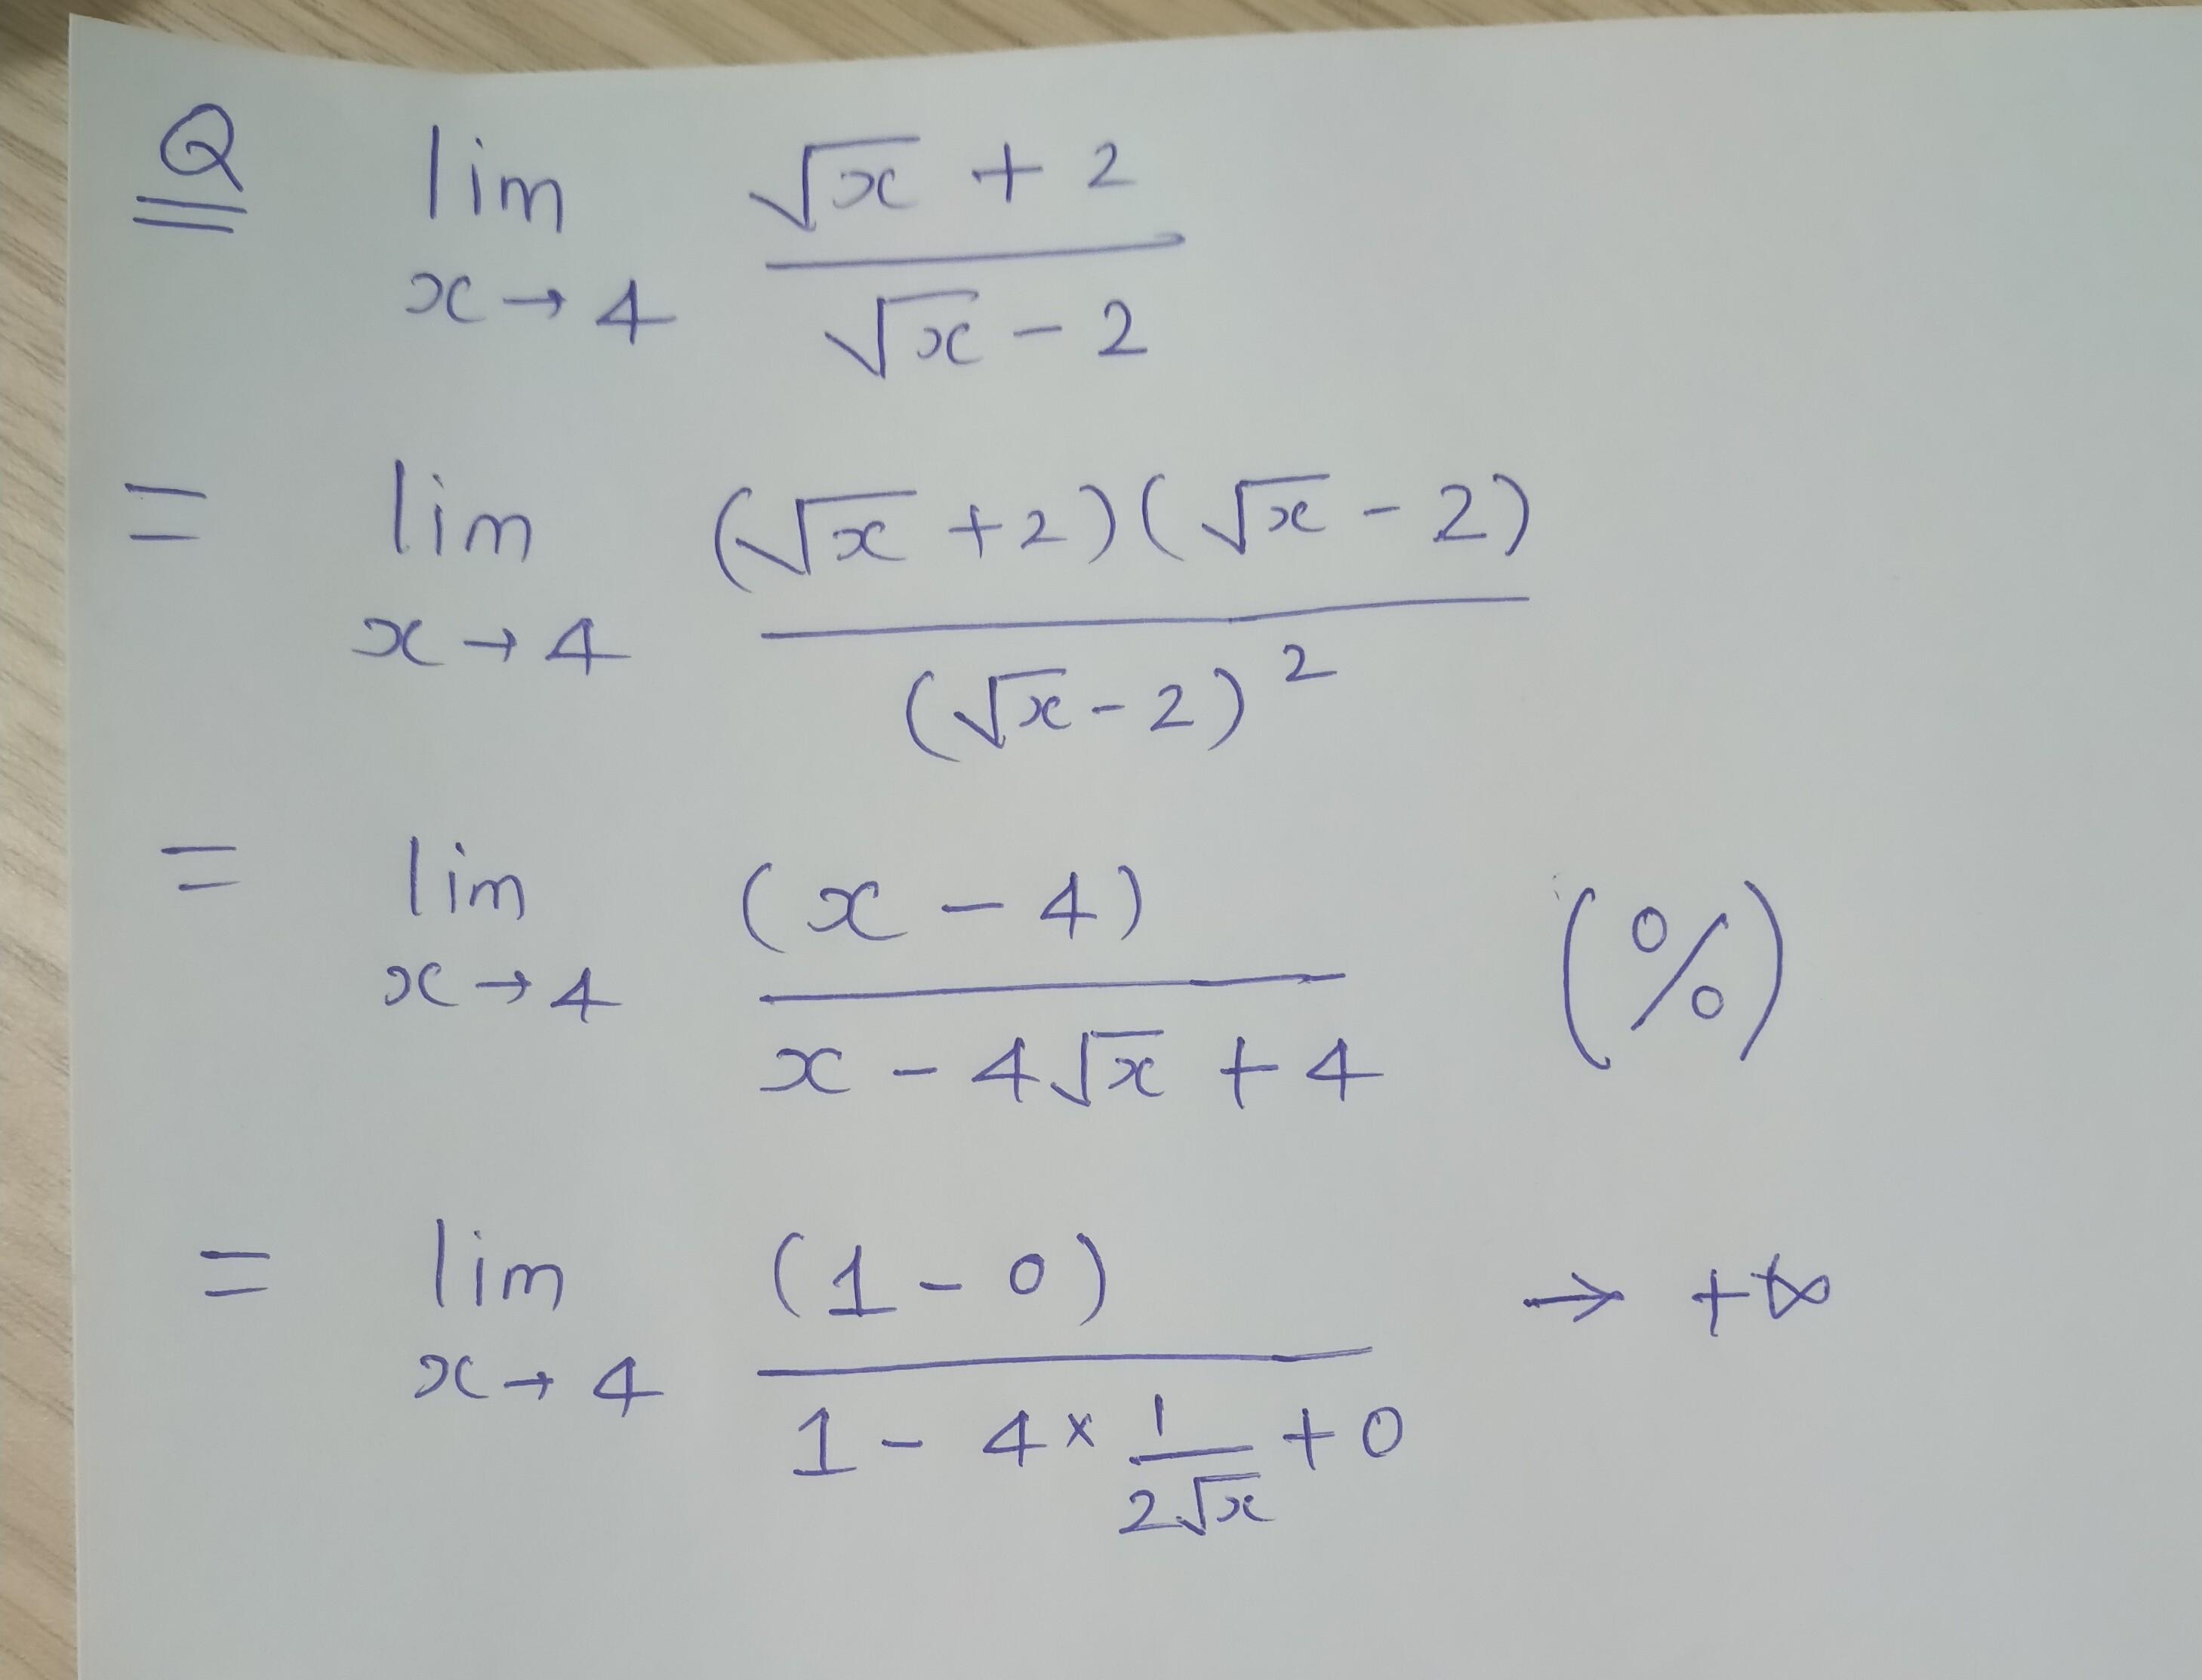 Q lim x→4 (√x + 2)/(√x - 2)
= lim x→4 ((√x + 2)(√x - 2))/(√x - 2)²
= lim x→4 (x - 4)/(x - 4√x + 4) (0/0)
= lim x→4 (1 - 0)/(1 - 4 × 1/(2√x) + 0) → +∞